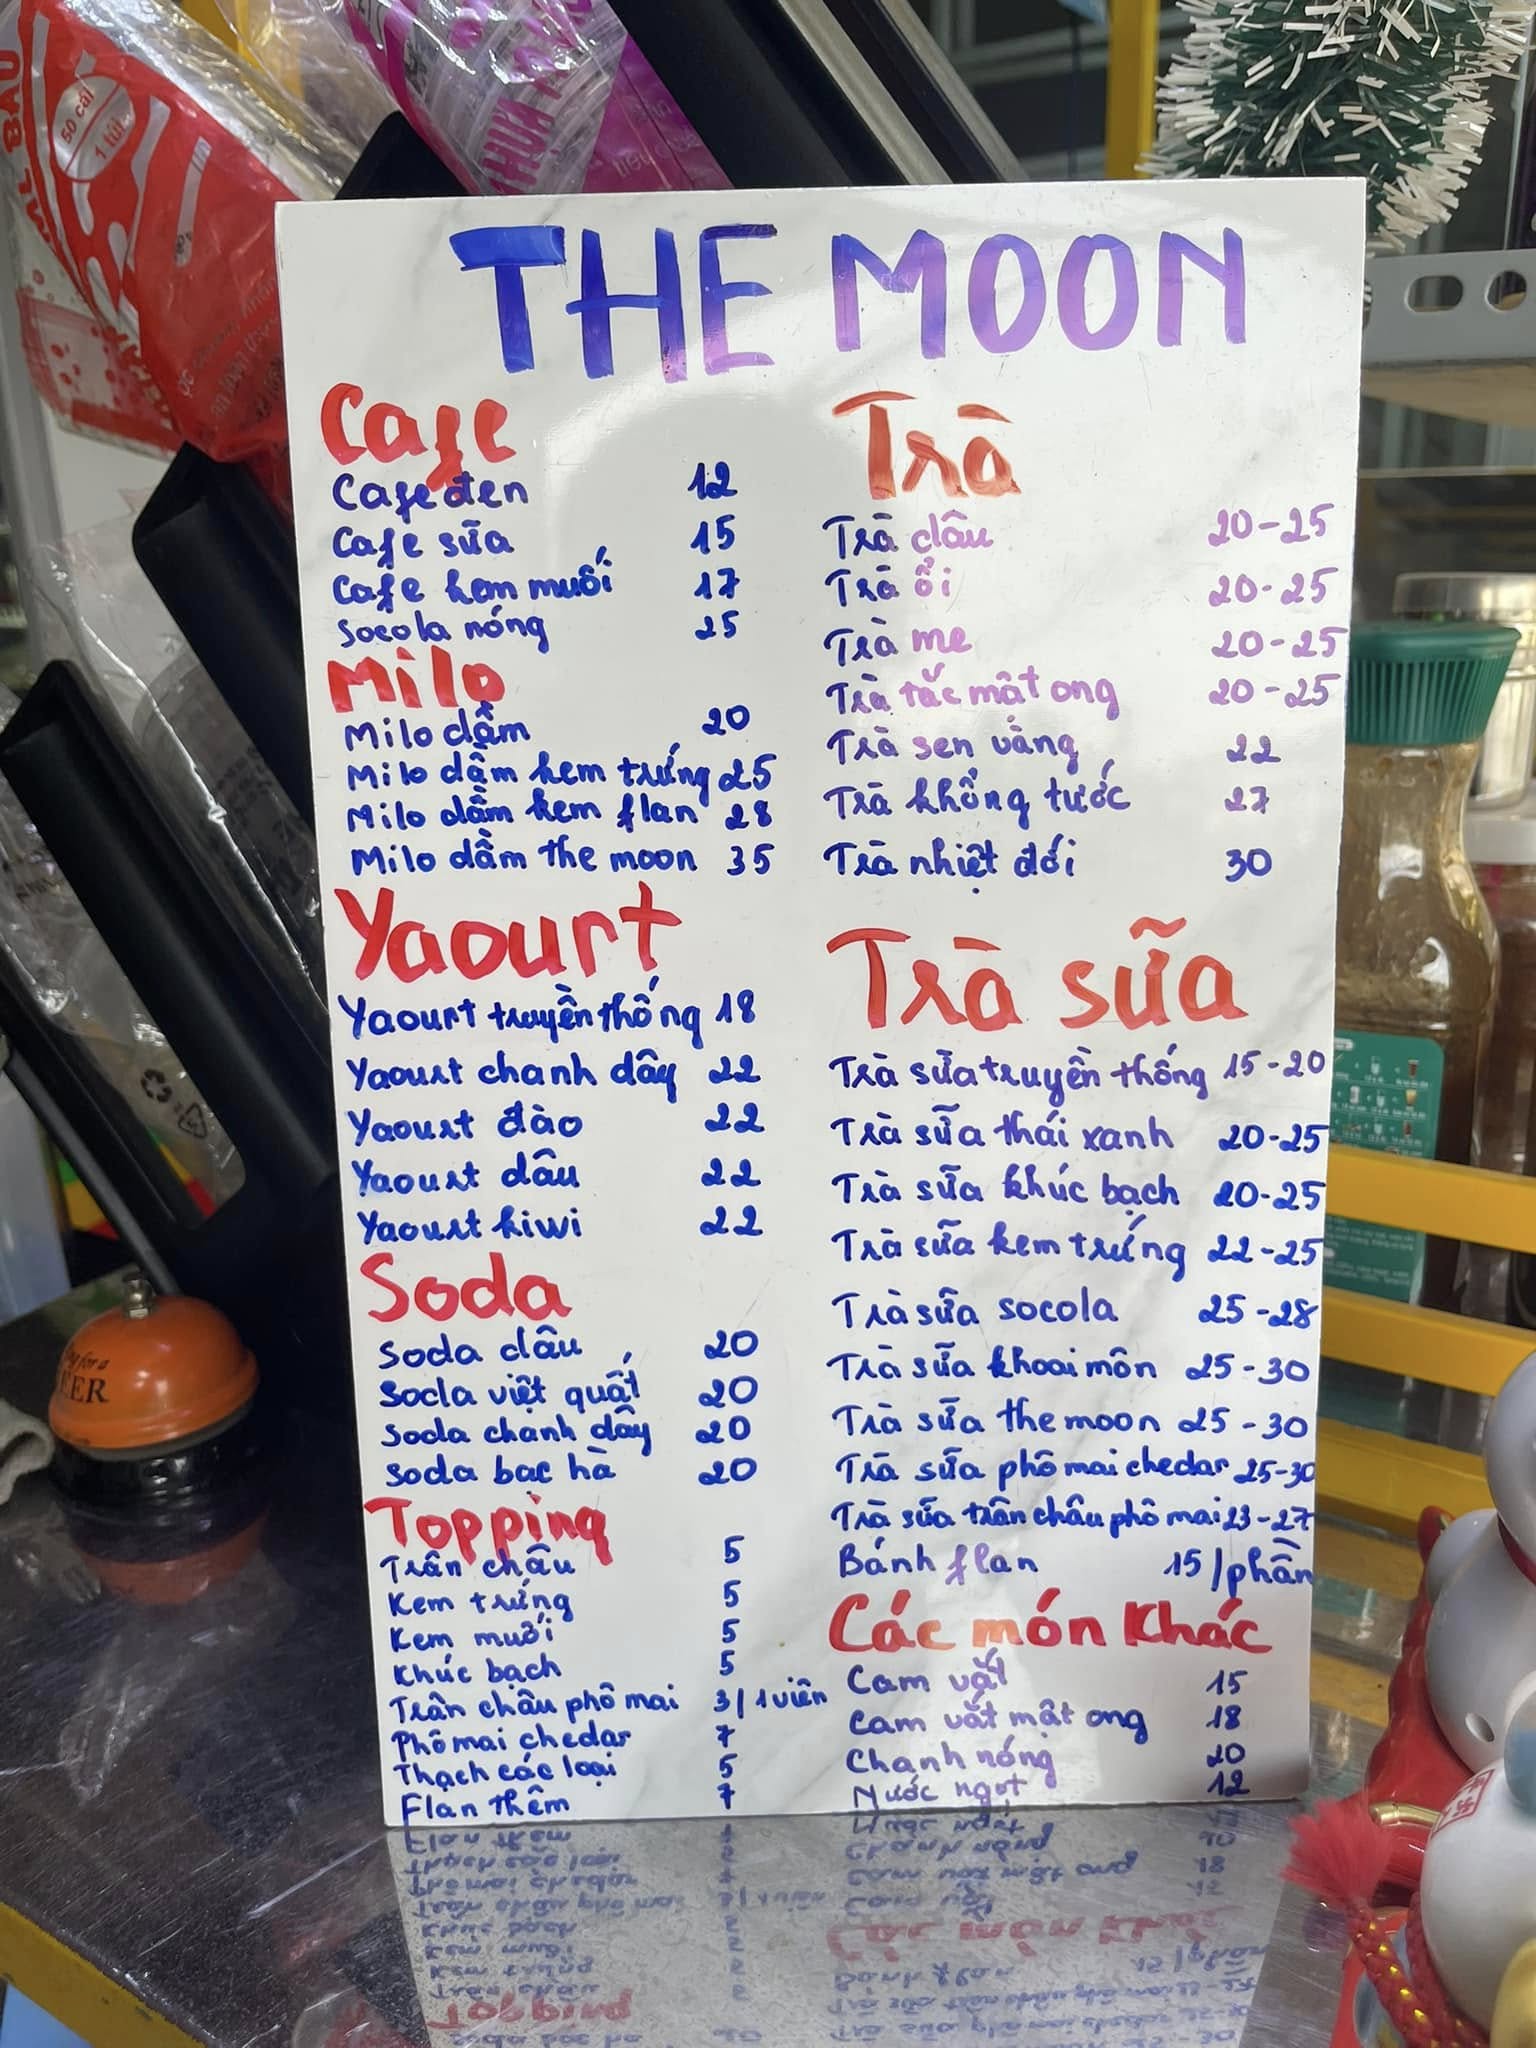 THE MOON
Cafe
Cafe đen 12
Cafe sữa 15
Cafe kem muối 17
Socola nóng 25
Milo
Milo dầm 20
Milo dầm kem trứng 25
Milo dầm kem flan 28
Milo dầm the moon 35
Yaourt
Yaourt truyền thống 18
Yaourt chanh dây 22
Yaourt đào 22
Yaourt dâu 22
Yaourt kiwi 22
Soda
Soda dâu 20
Soda việt quất 20
Soda chanh dây 20
Soda bạc hà 20
Topping
Trân châu 5
Kem trứng 5
Kem muối 5
Khúc bạch 5
Trân châu phô mai 3/1 viên
Phô mai chedar 7
Thạch các loại 5
Flan thêm 7
Trà
Trà dâu 20-25
Trà ổi 20-25
Trà me 20-25
Trà tắc mật ong 20-25
Trà sen vàng 22
Trà khổng tước 27
Trà nhiệt đới 30
Trà sữa
Trà sữa truyền thống 15-20
Trà sữa thái xanh 20-25
Trà sữa khúc bạch 20-25
Trà sữa kem trứng 22-25
Trà sữa socola 25-28
Trà sữa khoai môn 25-30
Trà sữa the moon 25-30
Trà sữa phô mai chedar 25-30
Trà sữa trân châu phô mai 23-27
Bánh flan 15/phần
Các món khác
Cam vắt 15
Cam vắt mật ong 18
Chanh nóng 20
Nước ngọt 12
50 cái
1 túi